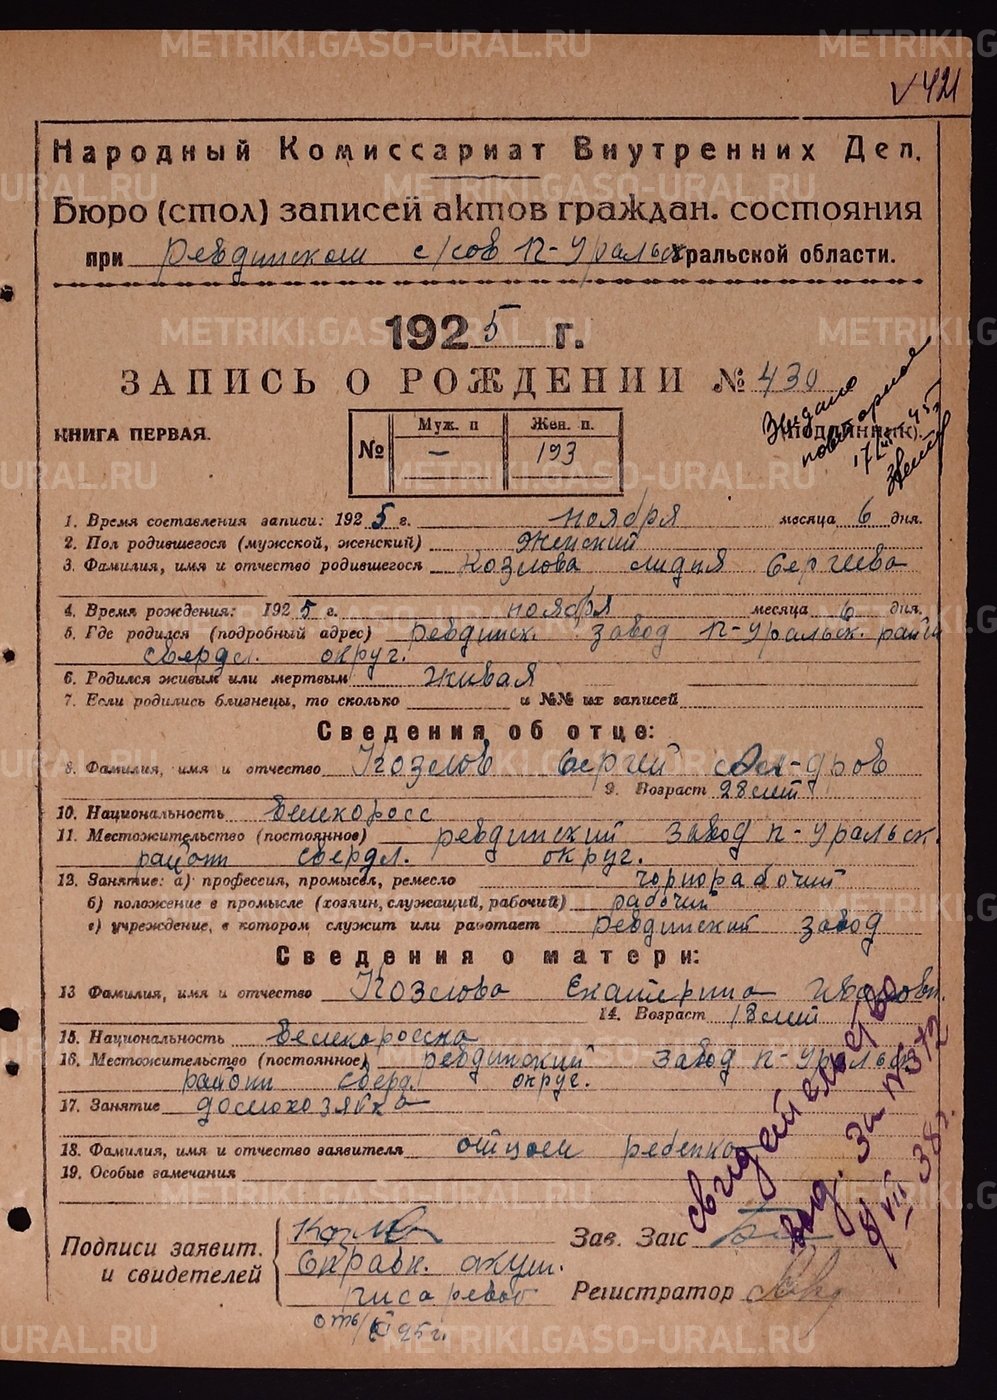 METRIKI.GASO-URAL.RU
V 421
Народный Комиссариат Внутренних Дел.
Бюро (стол) записей актов граждан. состояния
при Ревдинском с/сов П-Уральск Уральской области.
1925 г.
ЗАПИСЬ О РОЖДЕНИИ № 430
КНИГА ПЕРВАЯ.
№ Муж. п Жен. п.
— 193
(подлинник).
Выдано
повторное
1. Время составления записи: 1925 г. ноября месяца 6 дня.
2. Пол родившегося (мужской, женский) Женский
3. Фамилия, имя и отчество родившегося Козлова Лидия Сергеева
4. Время рождения: 1925 г. ноября месяца 6 дня.
5. Где родился (подробный адрес) Ревдинск. завод П-Уральск. район
свердл. округ.
6. Родился живым или мертвым Живая
7. Если родились близнецы, то сколько и №№ их записей
Сведения об отце:
8. Фамилия, имя и отчество Козлов Сергей
9. Возраст 28 лет
10. Национальность Великоросс
11. Местожительство (постоянное) Ревдинский завод П-Уральск.
район свердл. округ.
12. Занятие: а) профессия, промысел, ремесло чорнорабочий
б) положение в промысле (хозяин, служащий, рабочий) рабочий
в) учреждение, в котором служит или работает Ревдинский завод
Сведения о матери:
13 Фамилия, имя и отчество Козлова Екатерина Ивановн.
14. Возраст 18 лет
15. Национальность Великоросска
16. Местожительство (постоянное) Ревдинский завод П-Уральск
район сверд. округ.
17. Занятие домохозяйка
18. Фамилия, имя и отчество заявителя отцом ребенка
19. Особые замечания
свидетельство
выд. за № 372
8/VII 38 г.
Подписи заявит.
и свидетелей
Справк. акуш.
Писаревой
от 6/XI 25 г.
Зав. Загс
Регистратор